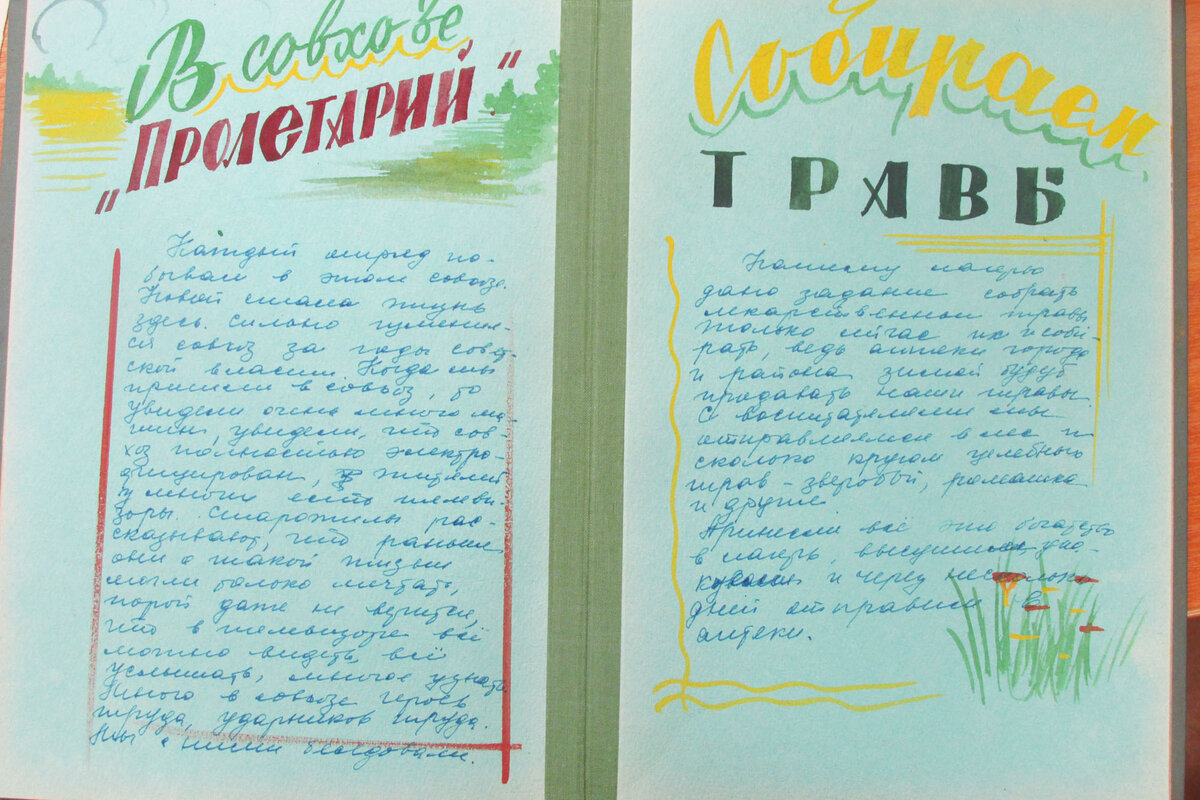 В совхозе
„ПРОЛЕТАРИЙ“
Каждый отряд по-
бывал в этом совхозе.
Новой стала жизнь
здесь. Сильно изменил-
ся совхоз за годы совет-
ской власти. Когда мы
пришли в совхоз, то
увидели очень много ма-
шин, увидели, что сов-
хоз полностью электро-
фицирован, жителей
у многих есть телеви-
зоры. Старожилы рас-
сказывают, что раньше
они о такой жизни
могли только мечтать,
порой даже не верится,
что в телевизоре всё
можно видеть, всё
услышать, многое узнать.
Много в совхозе героев
труда, ударников труда.
Мы с ними беседовали.
Собираем
ТРАВЫ
Нашему лагерю
дано задание собрать
лекарственной травы,
только сейчас их и соби-
рать, ведь аптеки города
и района зимой будут
продавать наши травы.
С воспитателями мы
отправляемся в лес и
сколько кругом целебного
трав - зверобой, ромашка
и другие
Принесли всё это богатство
в лагерь, высушили, упа-
ковали и через несколько
дней отправили в
аптеки.